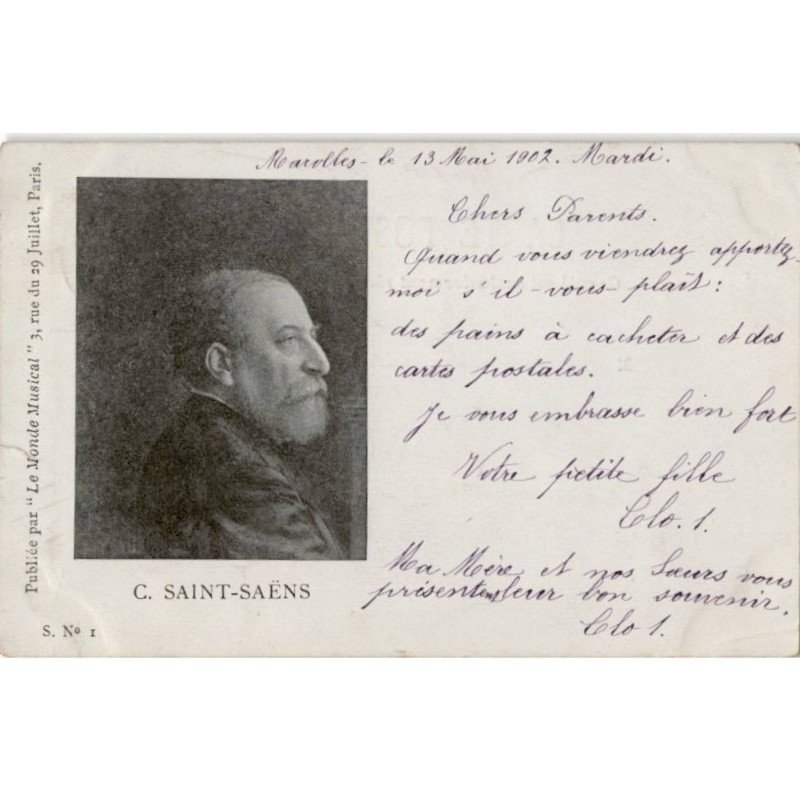 Publiée par "Le Monde Musical" 3, rue du 29 Juillet, Paris.
C. SAINT-SAËNS
S. Nº 1
Marolles - le 13 Mai 1902. Mardi.
Chers Parents.
Quand vous viendrez apportez-
moi s'il-vous-plaît:
des pains à cacheter et des
cartes postales.
Je vous embrasse bien fort
Votre petite fille
Clo. 1.
Ma Mère et nos Sœurs vous
présentent leur bon souvenir.
Clo 1.